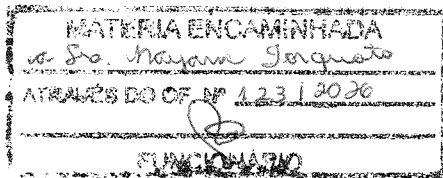 MATÉRIA ENCAMINHADA
a Sra. Mayara Torquato
ATRAVÉS DO OF. Nº 123/2026
FUNCIONÁRIO